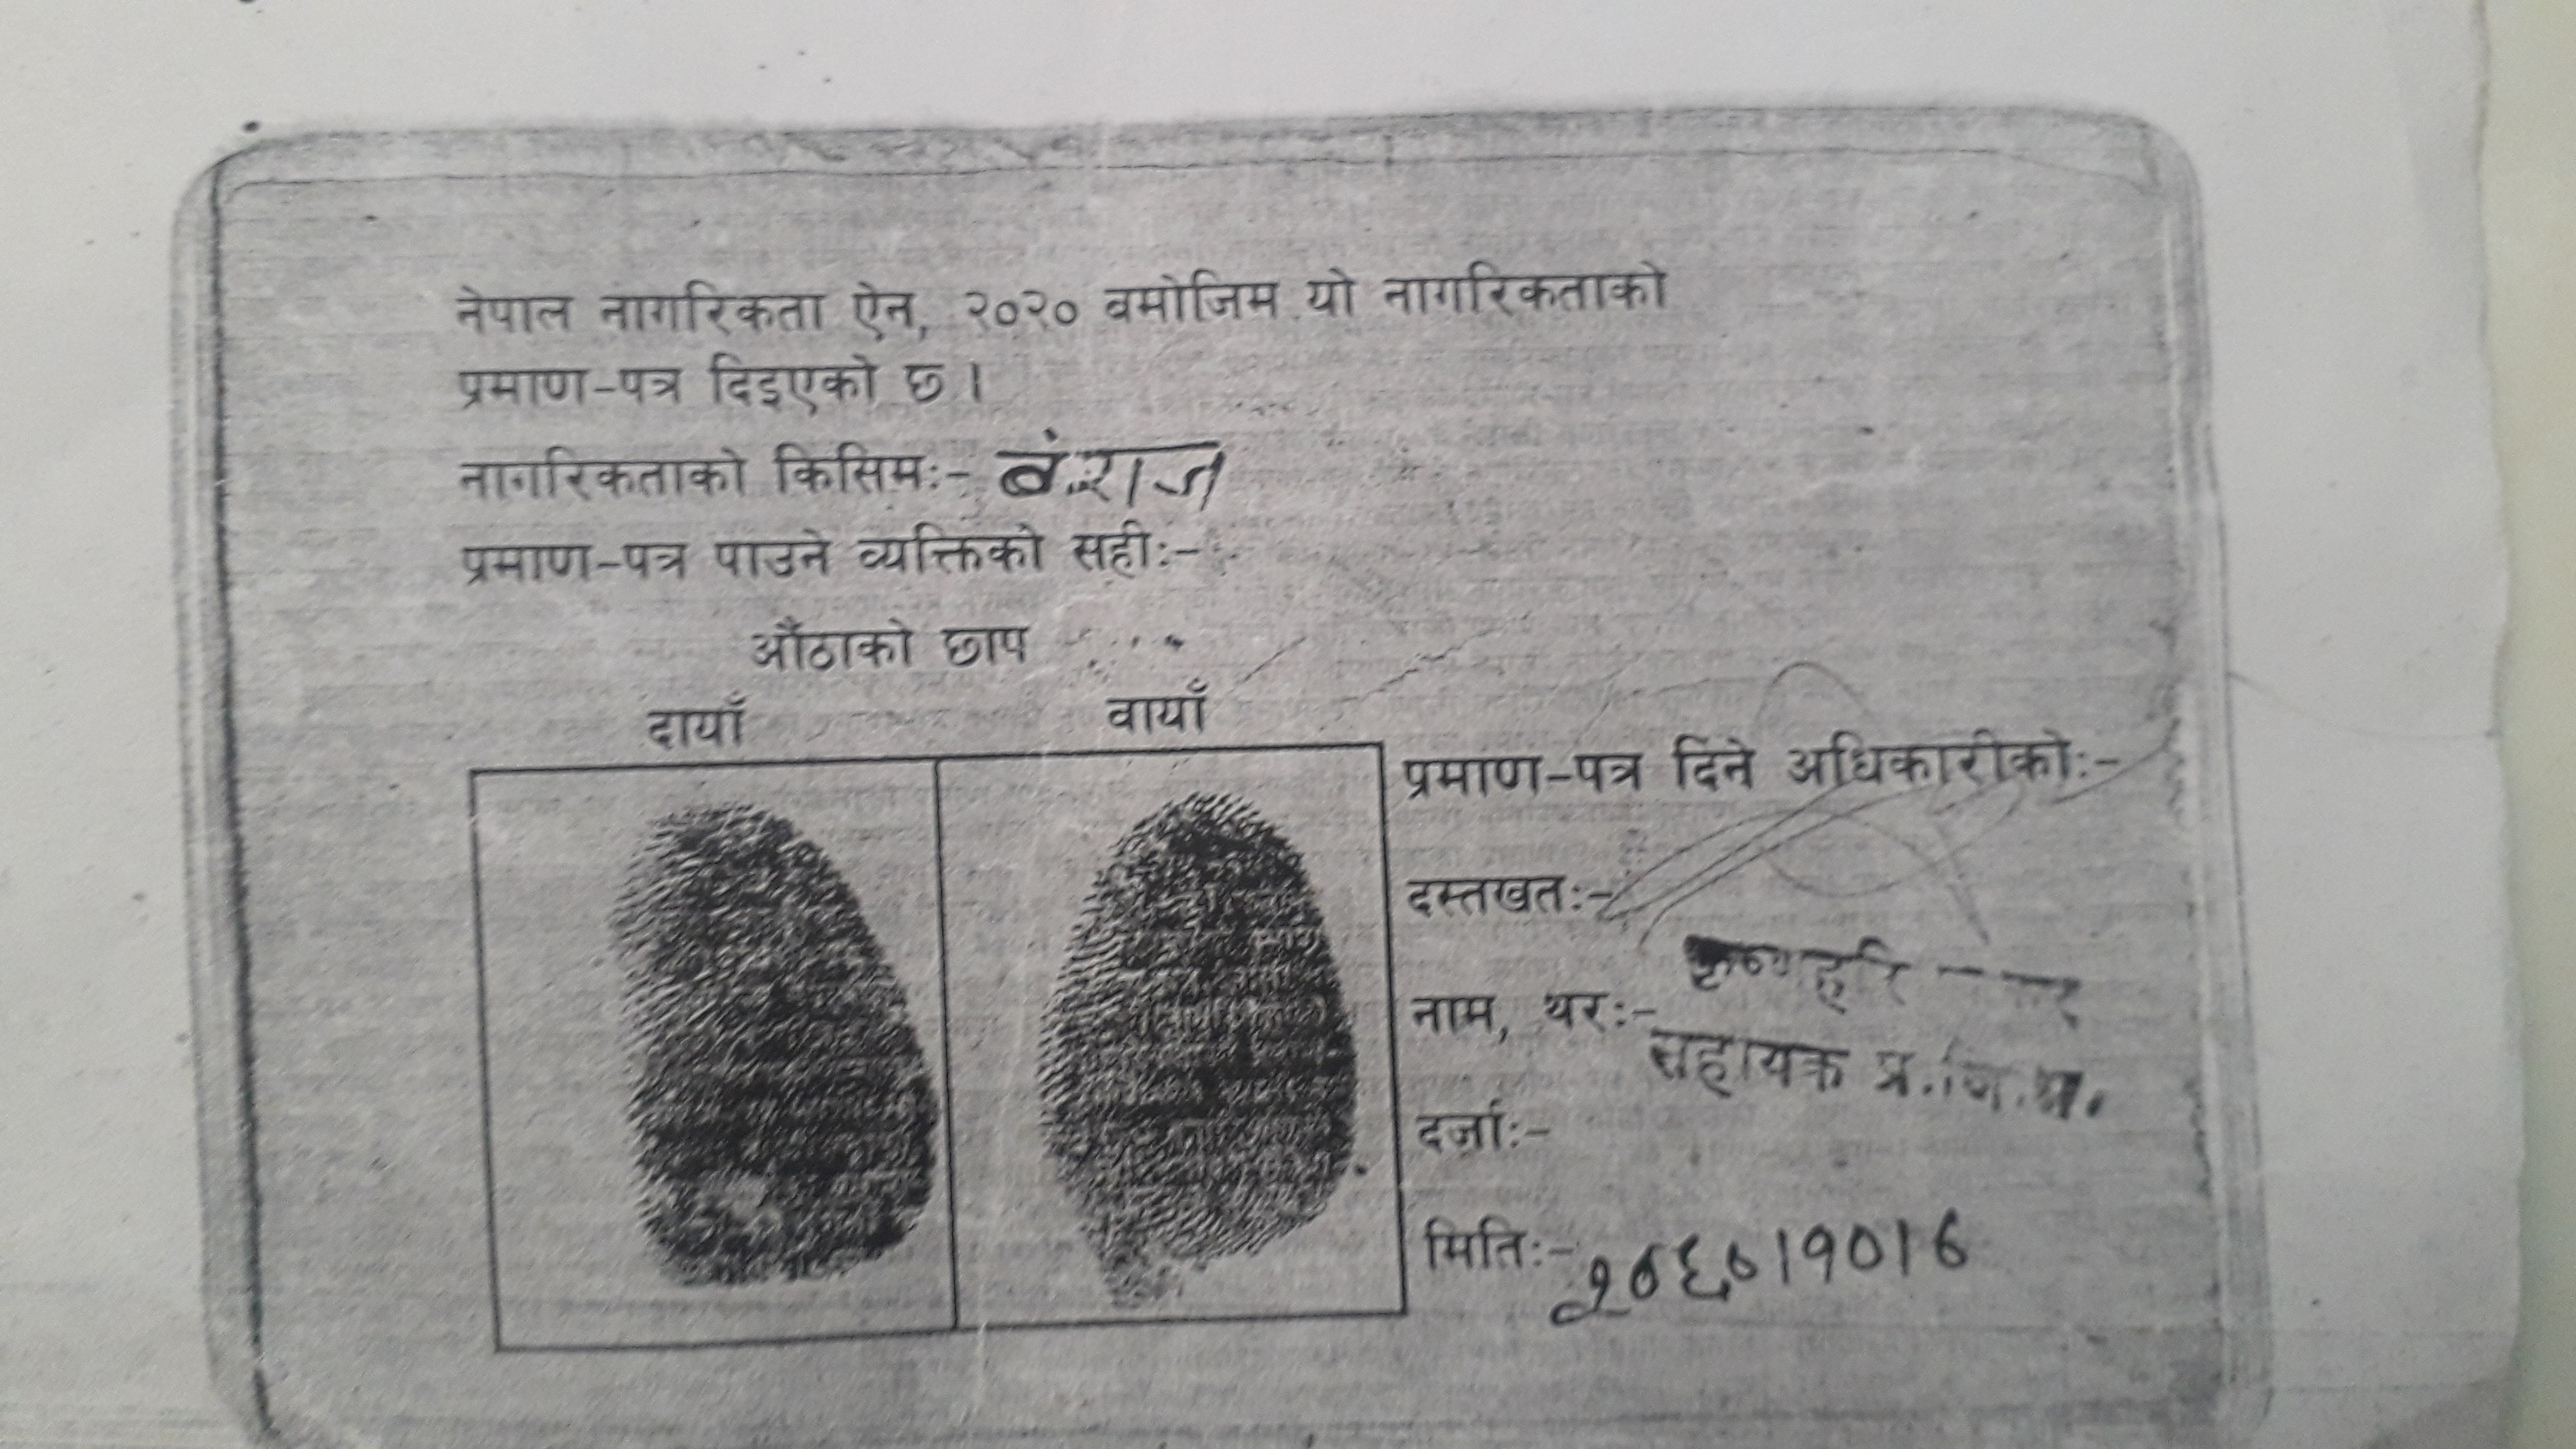 नेपाल नागरिकता ऐन, २०२० वमोजिम यो नागरिकताको
प्रमाण-पत्र दिइएको छ ।
नागरिकताको किसिमः- बंशज
प्रमाण-पत्र पाउने व्यक्तिको सहीः-
औंठाको छाप
दायाँ वायाँ
प्रमाण-पत्र दिने अधिकारीकोः-
दस्तखतः-
कृष्णहरि
नाम, थरः-
सहायक प्र.जि.अ.
दर्जाः-
मितिः- २०६०।१०।६